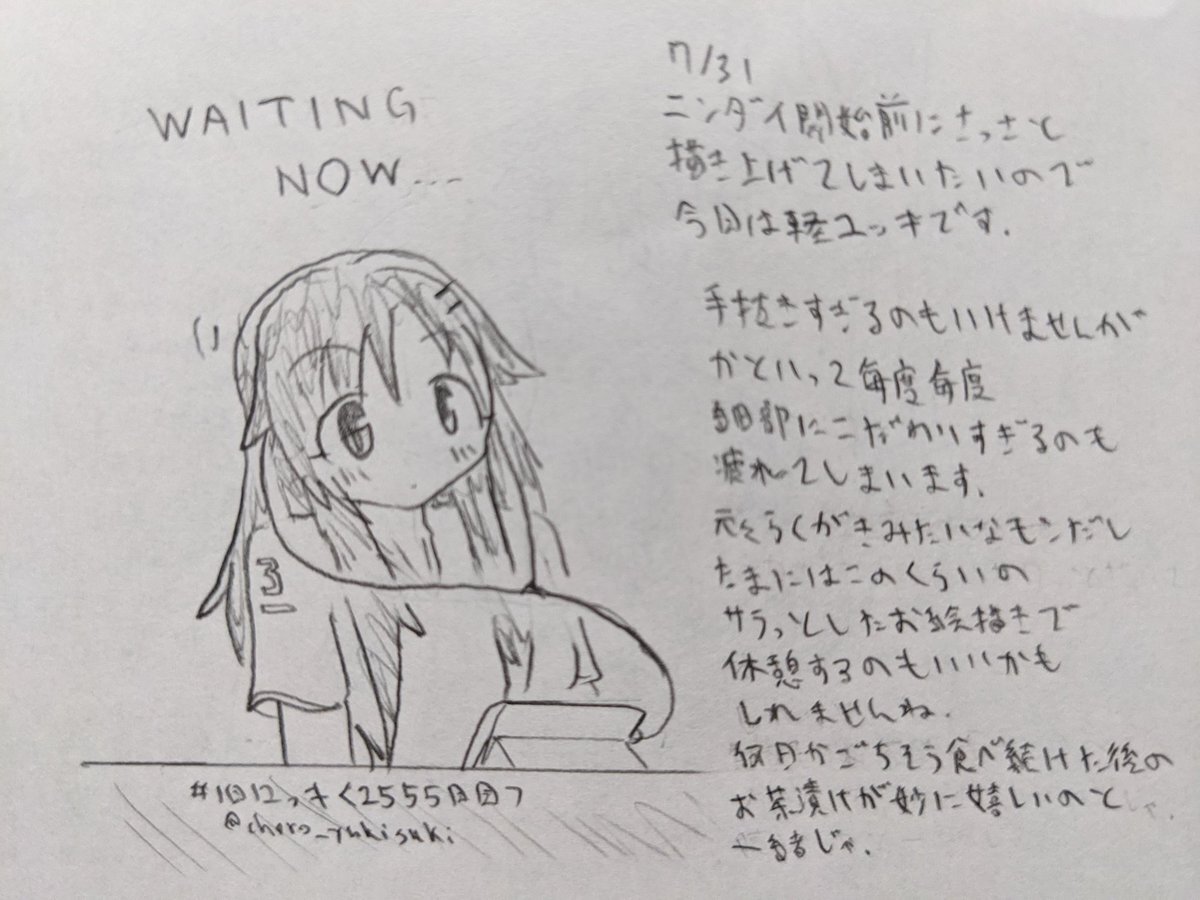 WAITING
NOW...
7/31
ニンダイ開始前にさっさと
描き上げてしまいたいので
今日は軽ユッキです.
手抜きすぎるのもいけませんが
かといって毎度毎度
細部にこだわりすぎるのも
疲れてしまいます.
元々らくがきみたいなモンだし
たまにはこのくらいの
サラっとしたお絵描きで
休憩するのもいいかも
しれませんね.
何日かごちそう食べ続けた後の
お茶漬けが妙に嬉しいのと
一緒じゃ.
3
#1日1ユッキ<2555日目>
@choro_yukisuki